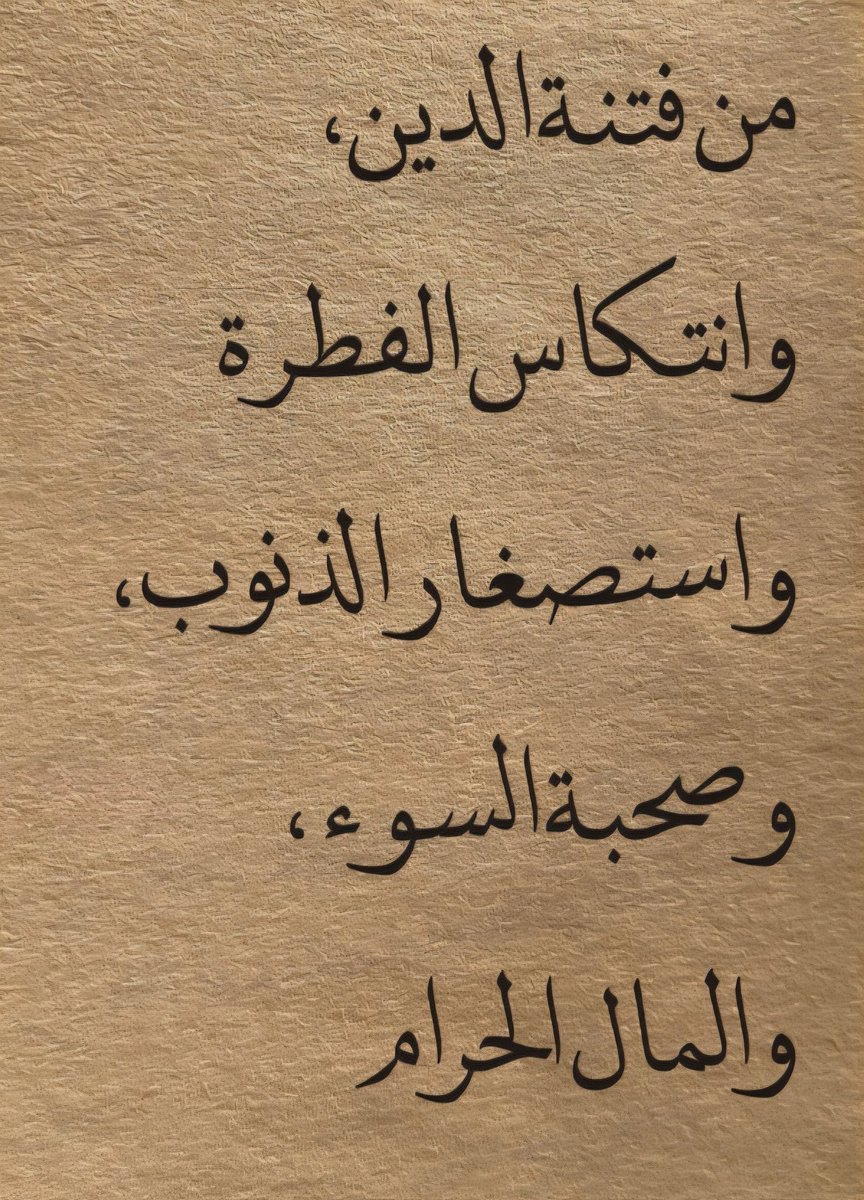 من فتنة الدين،
وانتكاس الفطرة
واستصغار الذنوب،
وصحبة السوء،
والمال الحرام